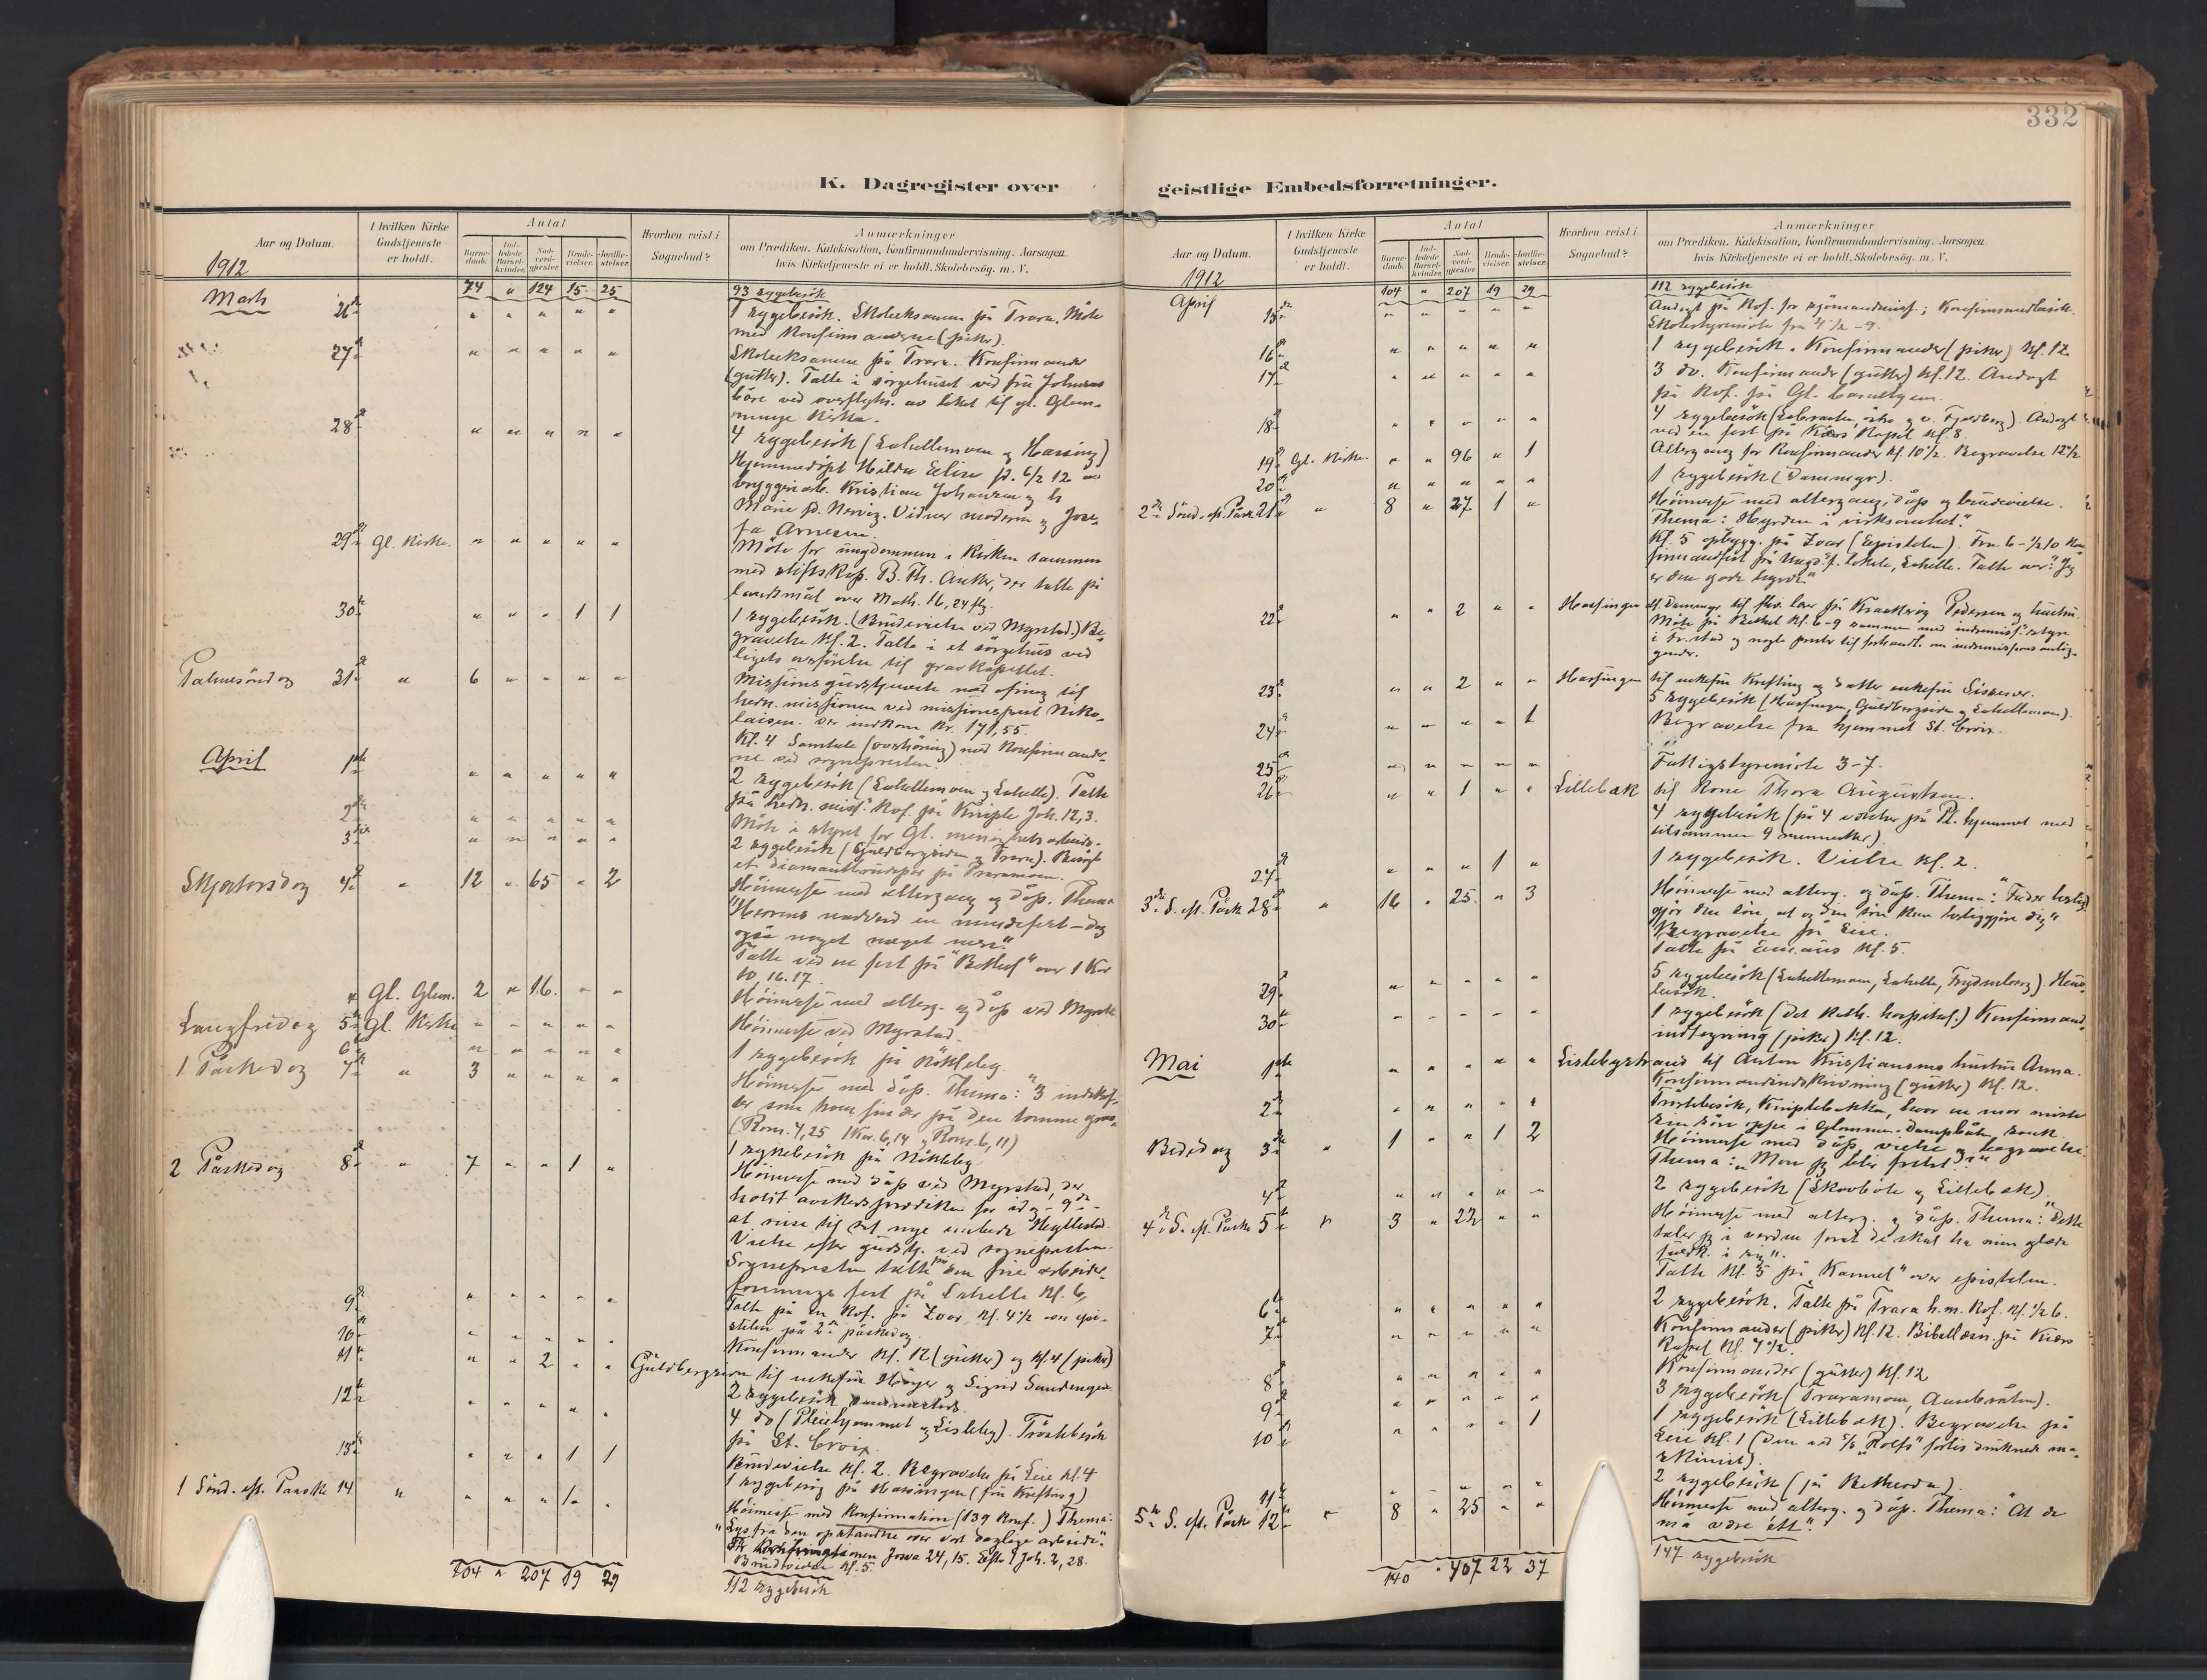 332
K. Dagregister over geistlige Embedsforretninger.
Aar og Datum.
I hvilken Kirke Gudstjeneste er holdt.
Antal
Barnedaab.
Indledede Barselkvinder.
Nadverdgjester.
Brudevielser.
Jordfæstelser.
Hvorhen reist i Sognebud?
Anmærkninger
om Prædiken, Katekisation, Konfirmandundervisning, Aarsagen
hvis Kirketjeneste ei er holdt, Skolebesøg. m. V.
1912
74 " 124 15 25 93 sygebesök
Marts 26 " " " " " 1 sygebesök. Skoleeksamen på Trara. Möte
med Konfirmanderne (piker).
27 " " " " " Skoleeksamen på Trara. Konfirmander
(gutter). Talte i sörgehuset ved fru Johnsens
båre ved overflytn. av liket til gl. Glem-
minge Kirke.
28 " " " " " 4 sygebesök (Labellemoen og Hassing)
Hjemmedöpt Hilda Elise f. 6/2 12 av
bryggeriarb. Kristian Johansen og h
Marie Vidner moderen og Jose-
fa Arnesen.
29 Gl. Kirke. " " " " " Möte for ungdommen i Kirken sammen
med stiftskap. B. Th. Anker, der talte på
landsmål over Math. 16, 24 flg.
30 " " " 1 1 1 sygebesök. (Brudevielse ved Myrstad.) Be-
gravelse Kl. 2. Talte i et sörgehus ved
ligets overförelse til gravkapellet.
Palmesöndag 31 " 6 " " " " Missionsgudstjeneste med ofring til
hedn. missionen ved missionsprest Niko-
laisen. Der indkom Kr. 171,55.
Kl. 4 Samtale (overhöring) med Konfirmander-
ne ved sognepresten.
April 1ste " " " " " 2 sygebesök Talte
på hedn. miss. Kof. på Kniple Joh. 12,3.
2 " " " " " Möte i styret for Gl. menighets
3die " " " " " 2 sygebesök (Guldbergsiden og Trara). Besögt
et diamantbrudepar på Traramoen.
Skjærtorsdag 4 " 12 " 65 " 2 Höimesse med altergang og dåp. Thema
"Herrens nadverd en mindefest – dog
også noget meget mere."
Talte ved en fest på "Bethel" over 1 Kor
10, 16. 17.
" Gl. Glem. 2 " 16. " " Höimesse med alterg. og dåp ved Myrstad
Langfredag 5 Gl. Kirke " " " " " Höimesse ved Myrstad.
6 " " " " " 1 sygebesök på Nökleby.
1 Påskedag 7 " 3 " " " " Höimesse med dåp. Thema: "3
som tomme grav."
(Rom. 4,25 1 Kor. 6,14 og Rom. 6,11)
1 sykebesök på Nökleby.
2 Påskedag 8 " 7 " " 1 " Höimesse med dåp ved Myrstad, der
holdt avskedsprædiken for
at reise til sit nye embede
Vielse efter gudstj. ved sognepresten.
Sognepresten talte på den fire arbeider-
forenings fest på Labelle Kl. 6,
9 " " " " " Talte på en Kof. på Zoar Kl. 4 1/2 over epi-
stelen på 2 påskedag
10 " " " " " Konfirmander Kl. 12 (gutter) og Kl. 4 (piker)
11 " " 2 " " Guldbergsiden til enkefru Höyer og Sigrid Sandengen
2 sygebesök
12 " " " " " 4 do (Pleiehjemmet og Lisleby). Tröstebesök
på St. Croix.
13 " " " 1 1 Brudevielse Kl. 2. Begravelse på Leie Kl. 4
1 sygebesög på Hassingen (fru Krefting)
1 Sönd. ef. Paaske 14 " " " " 1 " Höimesse med Konfirmation (139 Konf.) Thema:
"Lys fra den opstandne over vort daglige arbeide."
Josva 24, 15. Efter 1 Joh. 2, 28.
Brudevielse Kl. 5.
104 " 207 19 29 112 sygebesök
Aar og Datum.
I hvilken Kirke Gudstjeneste er holdt.
Antal
Barnedaab.
Indledede Barselkvinder.
Nadverdgjester.
Brudevielser.
Jordfæstelser.
Hvorhen reist i Sognebud?
Anmærkninger
om Prædiken, Katekisation, Konfirmandundervisning, Aarsagen
hvis Kirketjeneste ei er holdt, Skolebesög. m. V.
1912
104 " 207 19 29 112 sygebesök
April 15 " " " " " Andagt på Kof. for sjömandsmiss.; Konfirmandbesök.
Skolestyremöte fra 4 1/2 – 9.
16 " " " " " 1 sygebesök. Konfirmander (piker) Kl. 12
17 " " " " " 3 do. Konfirmander (gutter) Kl. 12. Andagt
på Kof. på Gl.
18 " " " " " 4 sygebesök Andagt
ved en fest på Kiærs Kapel Kl. 8
19 Gl. Kirke. " " 96 " 1 Altergang for Konfirmander Kl. 10 1/2. Begravelse 12 1/2
20 " " " " " 1 sygebesök
2 Sönd. ef. Påske 21 " 8 " 27 1 " Höimesse med altergang, dåp og brudevielse.
Thema: Hyrden i virksomhet."
Kl. 5 opbygg. på Zoar (Epistelen). Fra 6 – 1/2 10 Kon-
firmandfest på Ungd. f. lokale, Labelle. Talte over: "Jeg
er den gode hyrde"
22 " " 2 " " Hassingen til fhv. Pedersen og hustru.
Möte på Bethel Kl. 6–9 sammen med indremiss. styre
i Fr.stad og nogle prester til forhandl. om indremissions anlig-
gender.
23 " " 2 " " Hassingen til enkefru Krefting og datter enkefru
5 sygebesök (Hassingen, Guldbergsiden og Labellemoen).
24 " " " " 1 Begravelse fra hjemmet St. Croix.
25 " " " " " Fattigstyremöte 3–7.
26 " " 1 " " Lillebæk til Kone Thora Augustsen.
4 sygebesök (på 4 værelser på Pl. hjemmet med
tilsammen 9 mennesker)
27 " " " 1 " 1 sygebesök. Vielse Kl. 2.
3 S. ef. Påske 28 " 16 " 25. " 3 Höimesse med alterg. og dåp. Thema: "Fader herlig-
gjör din sön, at og din sön kan herliggjöre dig"
Begravelse på Leie.
Talte på Emaus Kl. 5.
29 " " " " " 5 sygebesök (Labellemoen, Labelle, Frydenberg).
30 " " " " " 1 sygebesök (det kath. hospital.) Konfirmand-
indtegning (piker) Kl. 12.
Mai 1ste " " " " " Lislebystrand til Anton Kristiansens hustru Anna.
Konfirmandindskrivning (gutter) Kl. 12.
2 " " " " " Tröstebesök, Kniplebakken, hvor en mor mistet
sin sön oppe i Glommen. Dampbåten sank.
Bededag 3 " 1 " " 1 2 Höimesse med dåp, vielse og begravelse.
Thema: "Mon jeg blir frelst?"
4 " " " " " 2 sygebesök ( og Lillebæk)
4 S. ef. Påske 5 " 3 " 22 " " Höimesse med alterg. og dåp. Thema: "Dette
taler jeg i verden forat de skal ha min glæde
fuldk. i sig".
Talte Kl. 5 på "Karmel" over epistelen.
6 " " " " " 2 sygebesök. Talte på Trara h.m. Kof. Kl. 1/2 6.
7 " " " " " Konfirmander (piker) Kl. 12. Bibellæsn. på Kiærs
Kapel Kl. 7 1/2.
8 " " " " " Konfirmander (gutter) Kl. 12
9 " " " " " 3 sygebesök (Traramoen, ).
10 " " " " 1 1 sygebesök (Lillebæk). Begravelse på
Leie Kl. 1 (den ved s/s "Rolfs" forlis druknede ma-
skinist).
11 " " " " " 2 sygebesök
5 S. ef. Påske 12 " 8 " 25 " " Höimesse med alterg. og dåp. Thema: "At de
må være ett".
140 " 407 22 37 147 sygebesök